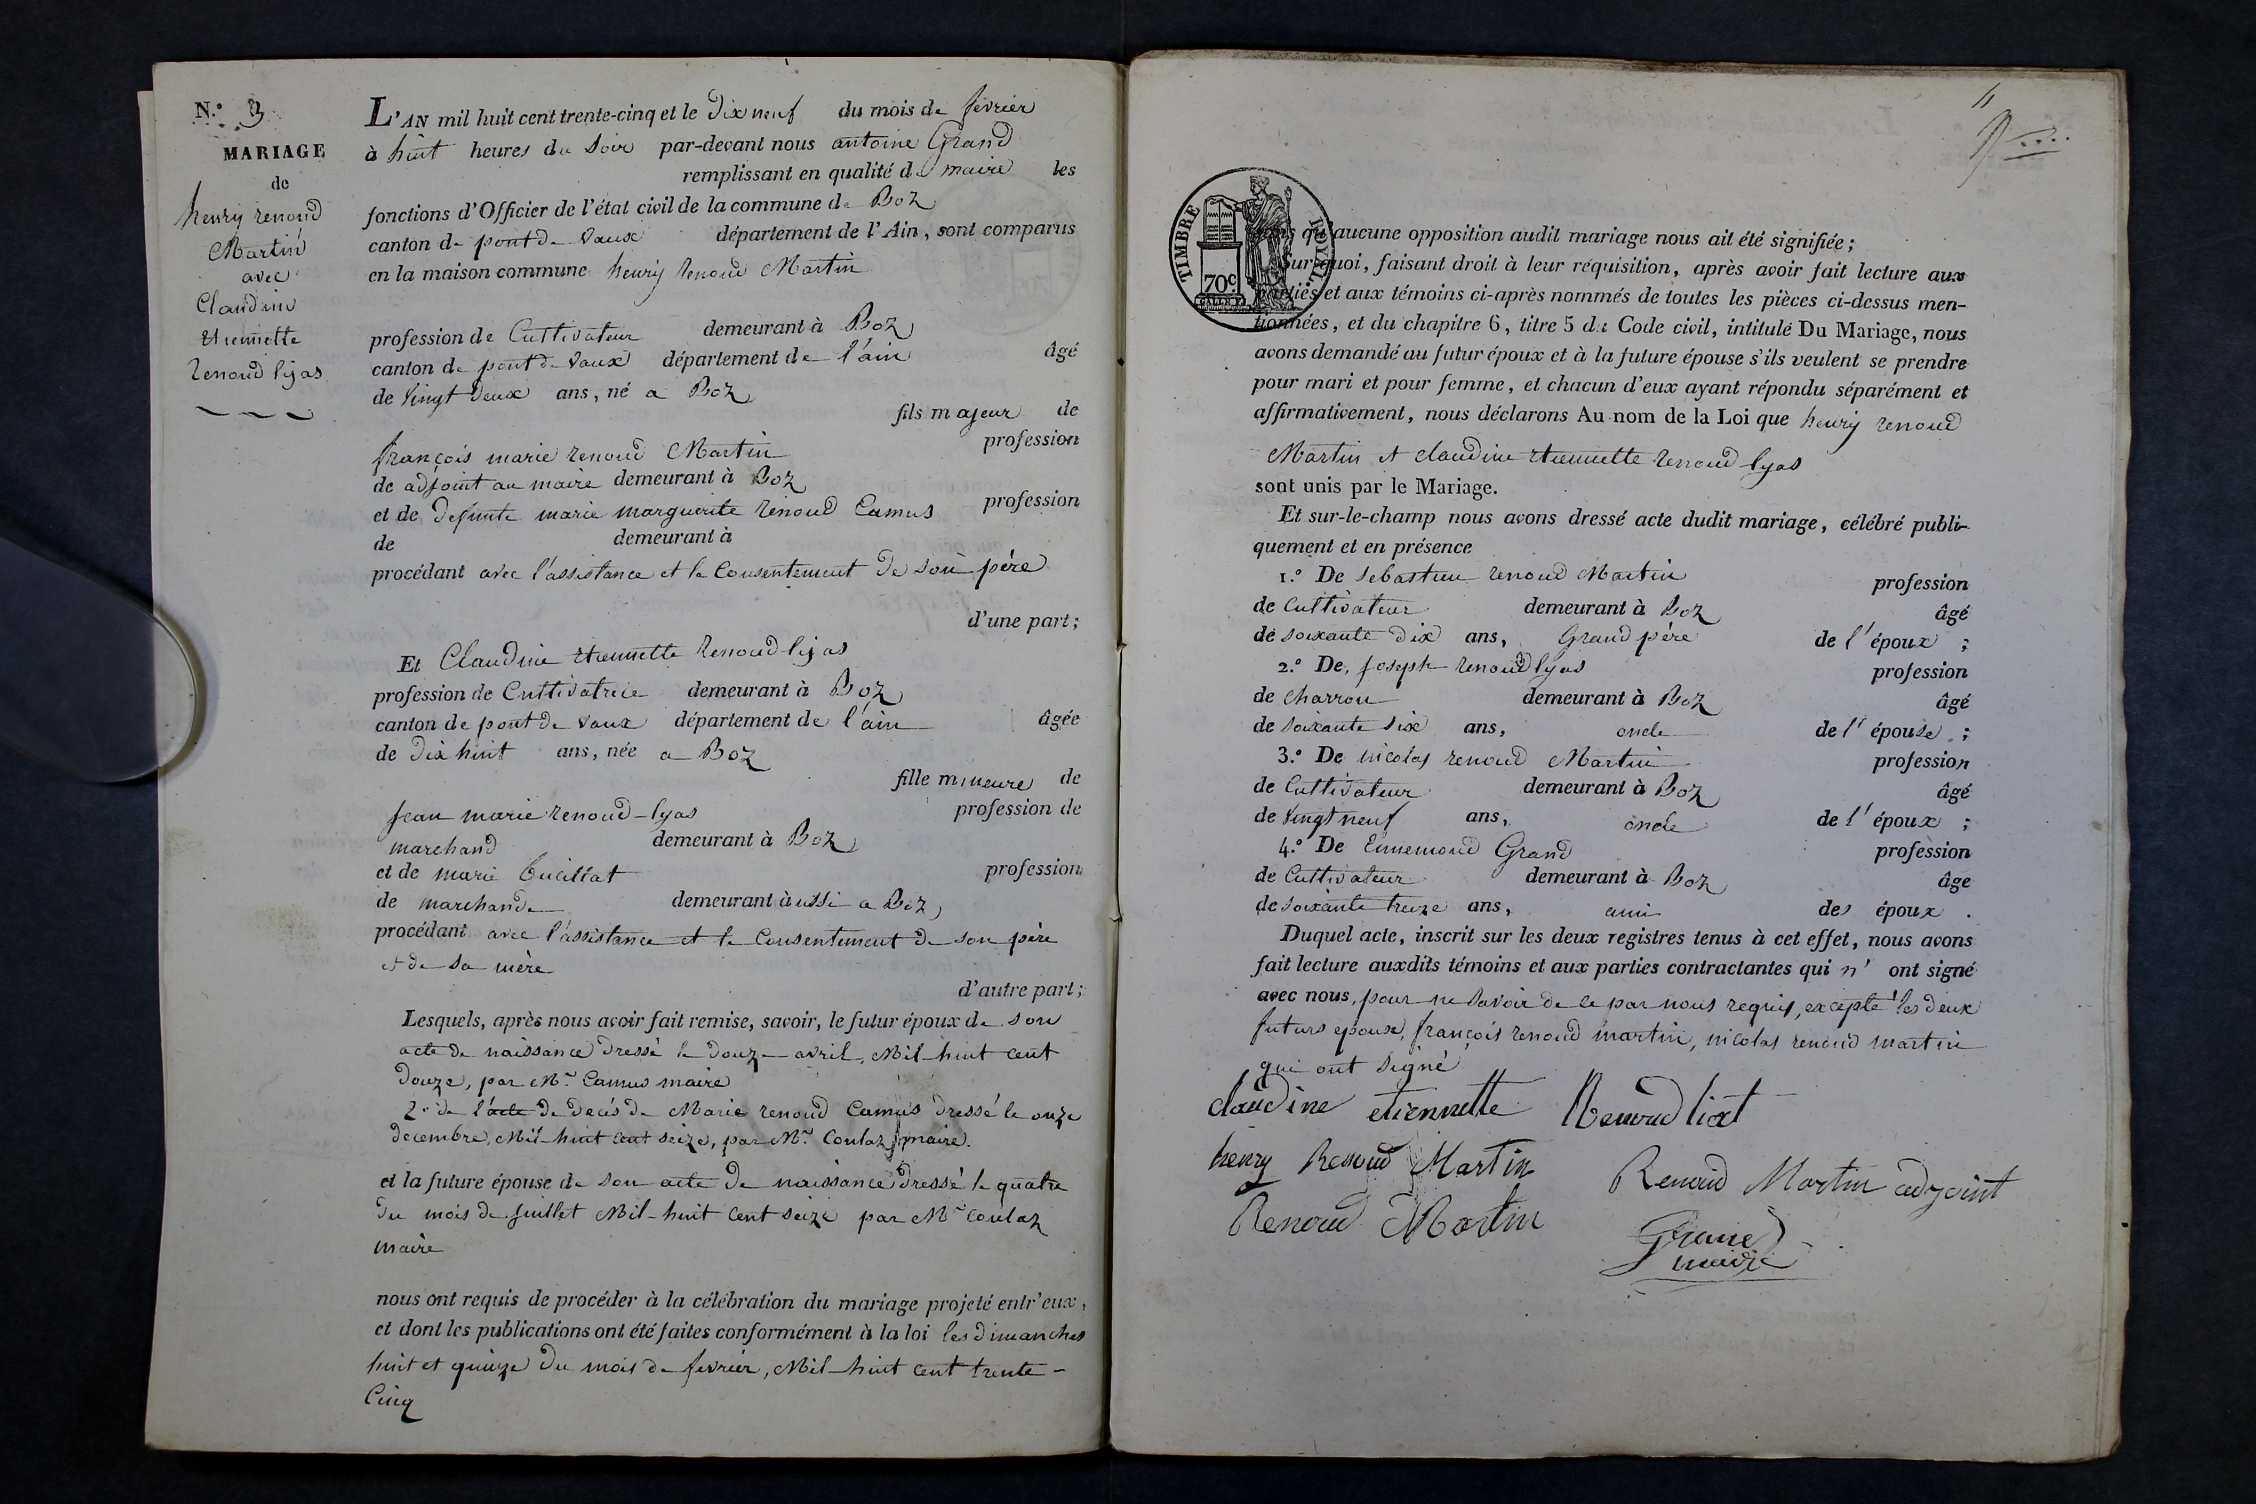 N.° 3
MARIAGE
de
henry renoud
Martin
avec
Claudine
etiennette
renoud lyas
L'AN mil huit cent trente-cinq et le dix neuf du mois de février
à huit heures du soir par-devant nous antoine Grand
remplissant en qualité de maire les
fonctions d'Officier de l'état civil de la commune de Boz
canton de pont de vaux département de l'Ain, sont comparus
en la maison commune henry renoud Martin
profession de Cultivateur demeurant à Boz
canton de pont de vaux département de l'ain âgé
de vingt deux ans, né a Boz
fils majeur de
françois marie renoud Martin profession
de adjoint au maire demeurant à Boz
et de defunte marie marguerite renoud Camus profession
de demeurant à
procédant avec l'assistance et le Consentement de son père
d'une part;
Et Claudine etiennette renoud lyas
profession de Cultivatrice demeurant à Boz
canton de pont de vaux département de l'ain âgée
de dix huit ans, née a Boz
fille mineure de
jean marie renoud-lyas profession de
marchand demeurant à Boz
et de marie Cucillat profession
de marchande demeurant àussi a Boz,
procédant avec l'assistance et le Consentement de son père
et de sa mère
d'autre part;
Lesquels, après nous avoir fait remise, savoir, le futur époux de son
acte de naissance dressé le douze avril, Mil-huit cent
douze, par Mr. Camus maire
2° de l'acte de decés de Marie renoud Camus dressé le onze
decembre, Mil-huit cent seize, par Mr. Coulaz maire.
et la future épouse de son acte de naissance dressé le quatre
du mois de juillet Mil-huit Cent seize par Mr Coulaz
maire
nous ont requis de procéder à la célébration du mariage projeté entr'eux,
et dont les publications ont été faites conformément à la loi les dimanches
huit et quinze du mois de fevrier, Mil-huit cent trente-
Cinq
11
TIMBRE ROYAL
70c.
sans qu'aucune opposition audit mariage nous ait été signifiée;
Sur quoi, faisant droit à leur réquisition, après avoir fait lecture aux
parties et aux témoins ci-après nommés de toutes les pièces ci-dessus men-
tionnées, et du chapitre 6, titre 5 du Code civil, intitulé Du Mariage, nous
avons demandé au futur époux et à la future épouse s'ils veulent se prendre
pour mari et pour femme, et chacun d'eux ayant répondu séparément et
affirmativement, nous déclarons Au nom de la Loi que henry renoud
Martin et claudine etiennette renoud lyas
sont unis par le Mariage.
Et sur-le-champ nous avons dressé acte dudit mariage, célébré publi-
quement et en présence
1.° De sebastien renoud Martin profession
de Cultivateur demeurant à Boz âgé
de soixante dix ans, Grand père de l'époux;
2.° De, joseph renoud lyas profession
de charron demeurant à Boz âgé
de soixante six ans, oncle de l'épouse;
3.° De nicolas renoud Martin profession
de Cultivateur demeurant à Boz âgé
de vingt neuf ans, oncle de l'époux;
4.° De Ennemond Grand profession
de Cultivateur demeurant à Boz âge
de soixante treize ans, ami des époux.
Duquel acte, inscrit sur les deux registres tenus à cet effet, nous avons
fait lecture auxdits témoins et aux parties contractantes qui n' ont signé
avec nous, pour ne savoir de ce par nous requis, excepté les deux
futurs epoux, françois renoud martin, nicolas renoud martin
qui ont signé
claudine etiennette Renoud liat
henry Renoud Martin
Renoud Martin adjoint
Renoud Martin
Grand
maire